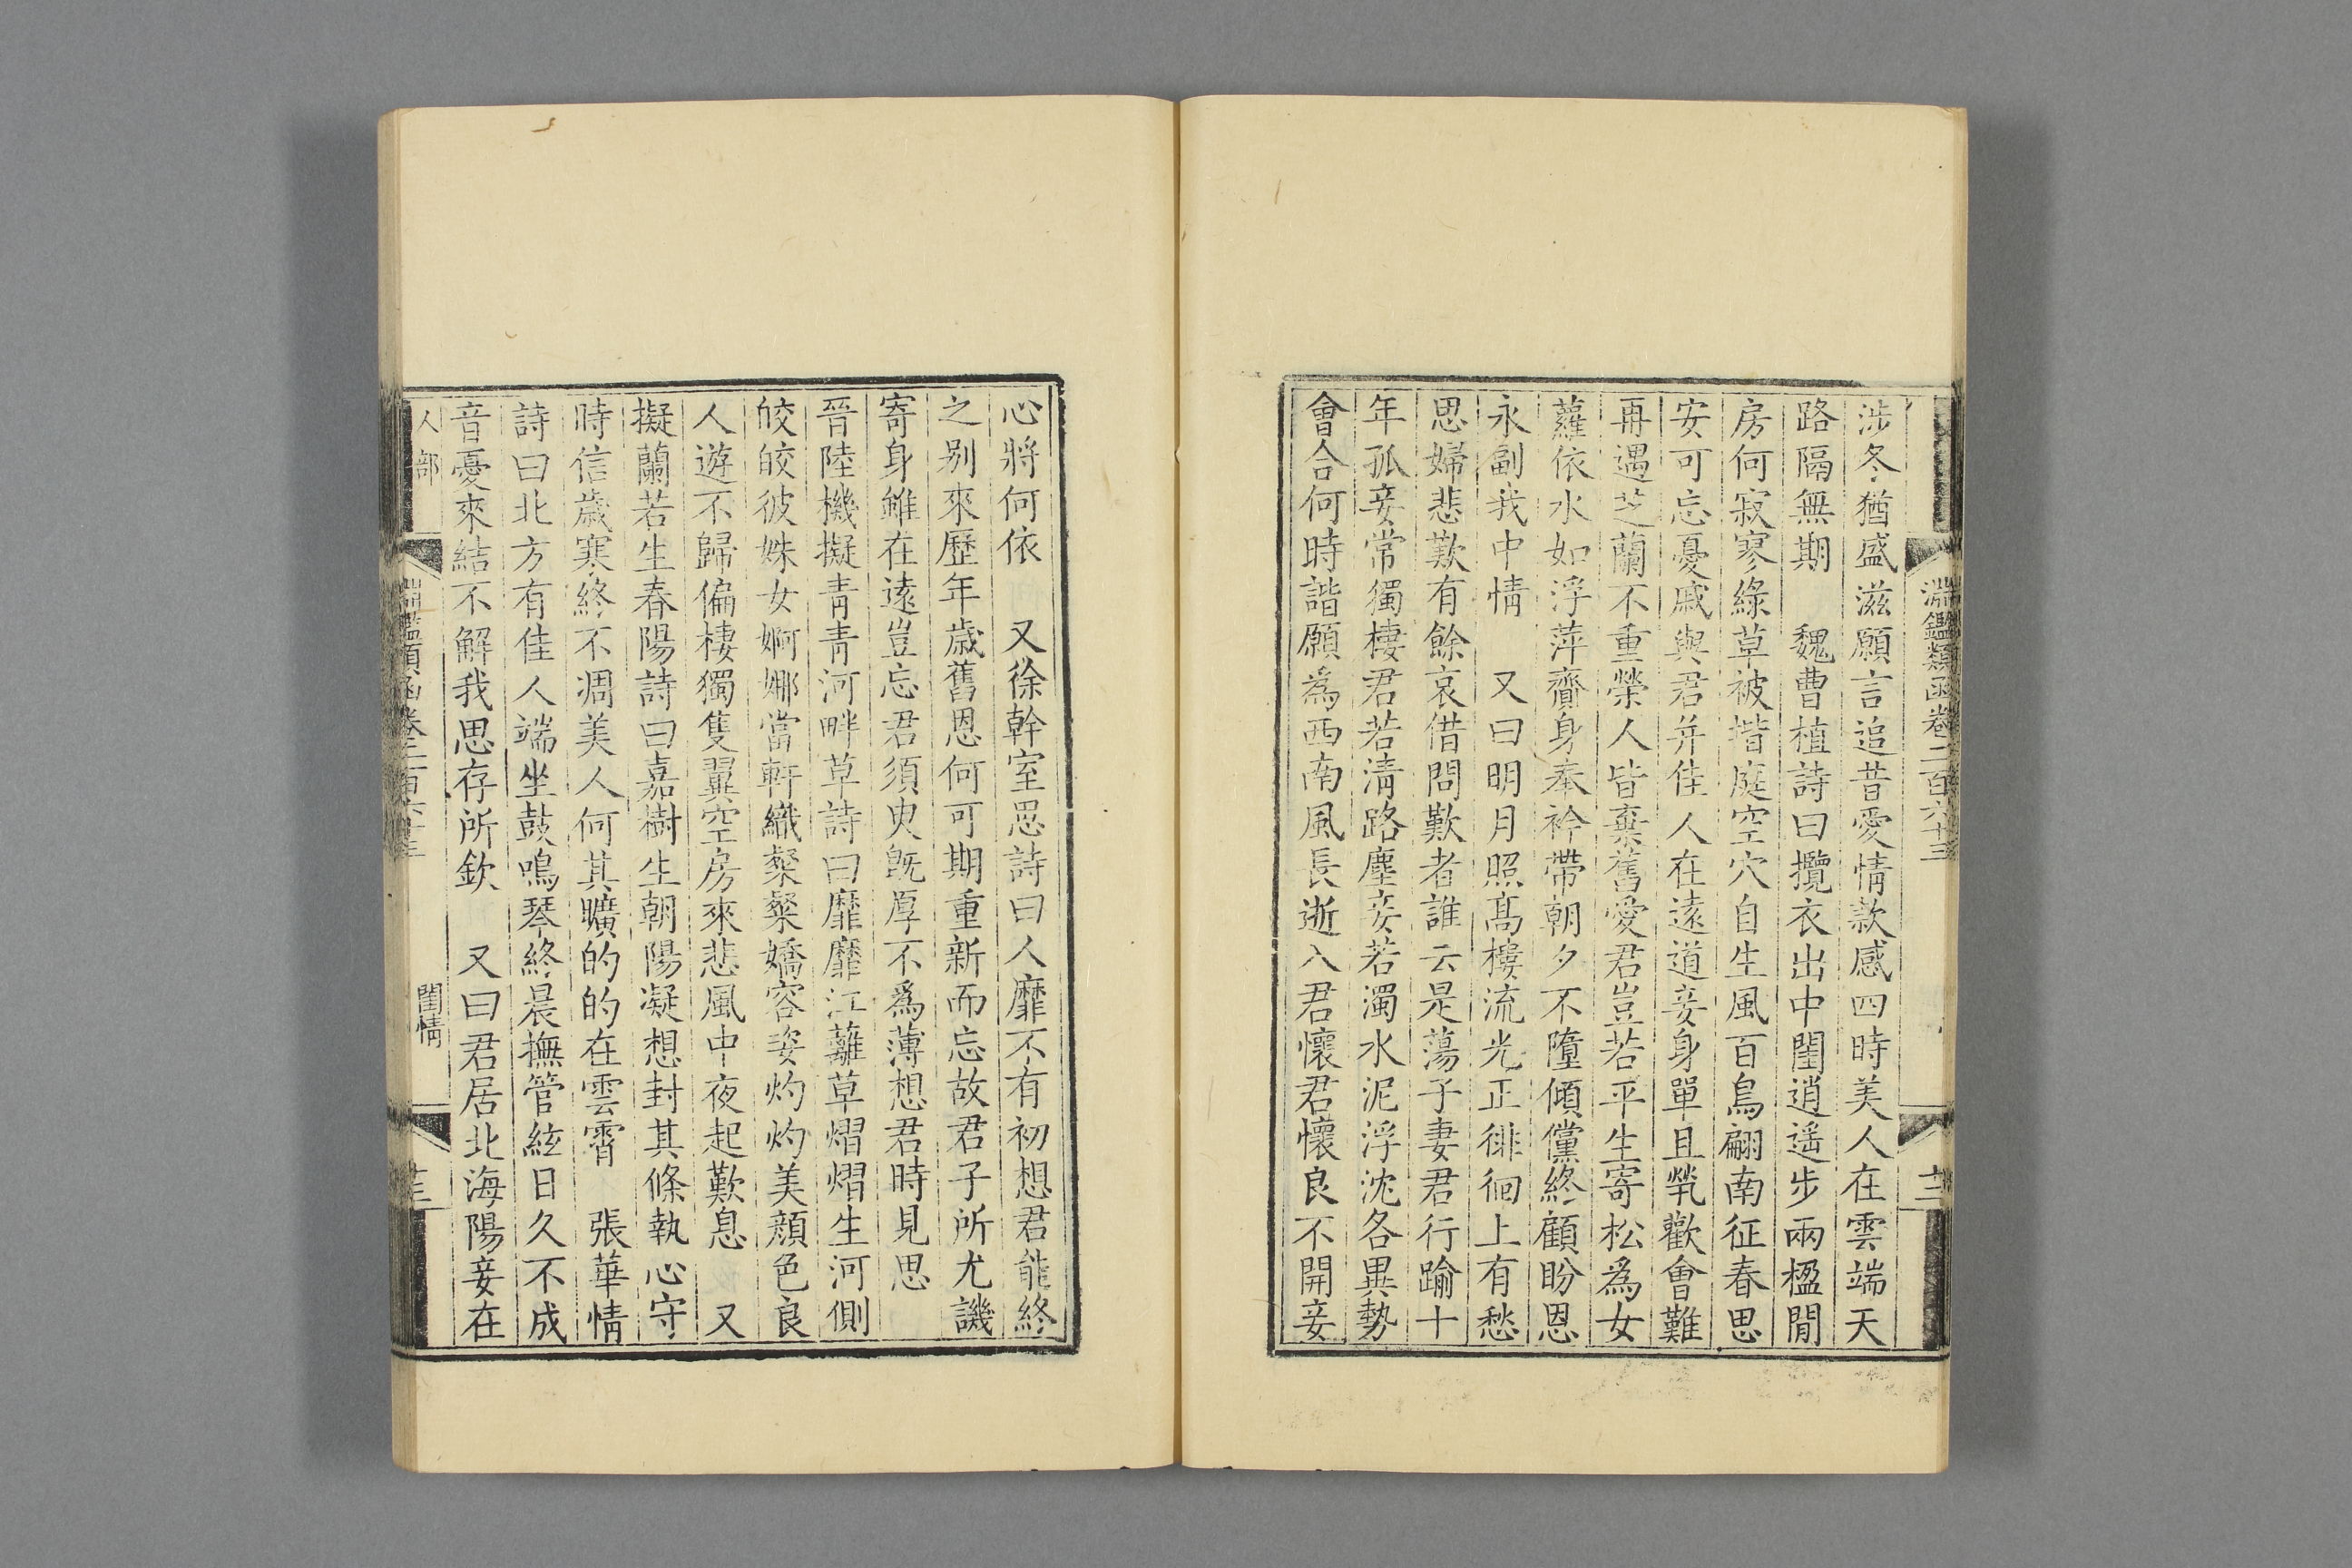 淵鑑類函卷二百六十三
十二
涉冬猶盛滋願言追昔愛情款感四時美人在雲端天
路隔無期　魏曹植詩曰攬衣出中閨逍遥步兩楹閒
房何寂寥綠草被堦庭空穴自生風百鳥翩南征春思
安可忘憂戚與君并佳人在遠道妾身單且煢歡會難
再遇芝蘭不重榮人皆棄舊愛君豈若平生寄松為女
蘿依水如浮萍齎身奉衿帶朝夕不隳傾儻終顧盼恩
永副我中情　又曰明月照髙樓流光正徘徊上有愁
思婦悲歎有餘哀借問歎者誰云是蕩子妻君行踰十
年孤妾常獨棲君若淸路塵妾若濁水泥浮沈各異勢
會合何時諧願為西南風長逝入君懷君懷良不開妾
心將何依　又徐幹室思詩曰人靡不有初想君能終
之别來歷年歲舊恩何可期重新而忘故君子所尤譏
寄身雖在遠豈忘君須臾旣厚不爲薄想君時見思
晉陸機擬靑靑河畔草詩曰靡靡江蘺草熠熠生河側
皎皎彼姝女婀娜當軒織粲粲嬌容姿灼灼美顔色良
人遊不歸偏棲獨隻翼空房來悲風中夜起歎息　又
擬蘭若生春陽詩曰嘉樹生朝陽凝想封其條執心守
時信歲寒終不凋美人何其曠的的在雲霄　張華情
詩曰北方有佳人端坐鼓鳴琴終晨撫管絃日久不成
音憂來結不解我思存所欽　又曰君居北海陽妾在
人部
淵鑑類函卷二百六十三
閨情
十三